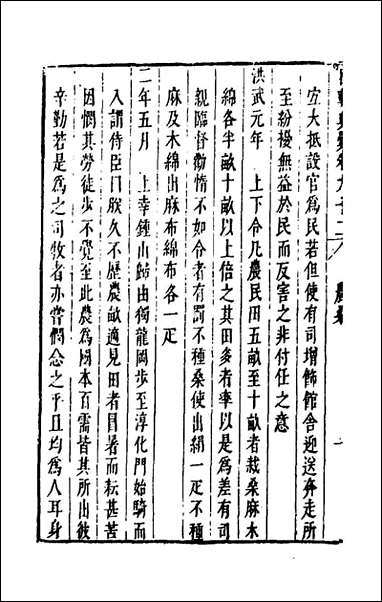 宜大抵設官為民若但使有司增飾館舎迎送奔走所
至紛擾無益於民而反害之非付任之意
洪武元年　上下令凡農民田五畝至十畝者栽桑麻木
綿各半畝十畝以上倍之其田多者率以是為差有司
親臨督勸惰不如令者有罰不種桑使出絹一疋不種
麻及木綿出麻布綿布各一疋
二年五月　上幸鍾山歸由獨龍岡步至淳化門始騎而
入謂侍臣曰朕久不歷農畝適見田者冒暑而耘甚苦
因憫其勞徒步不覺至此農為國本百需皆其所出彼
辛勤若是為之司牧者亦嘗憫念之乎且均為人耳身